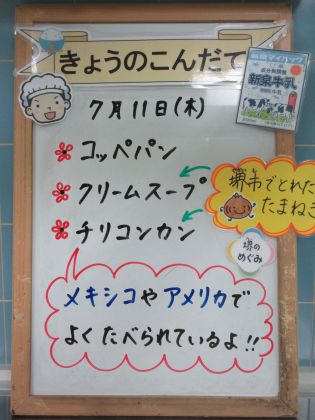 きょうのこんだて
7月11日(木)
コッペパン
クリームスープ
チリコンカン
堺市でとれた
たまねぎ
堺のめぐみ
メキシコやアメリカで
よくたべられているよ!!
新泉牛乳